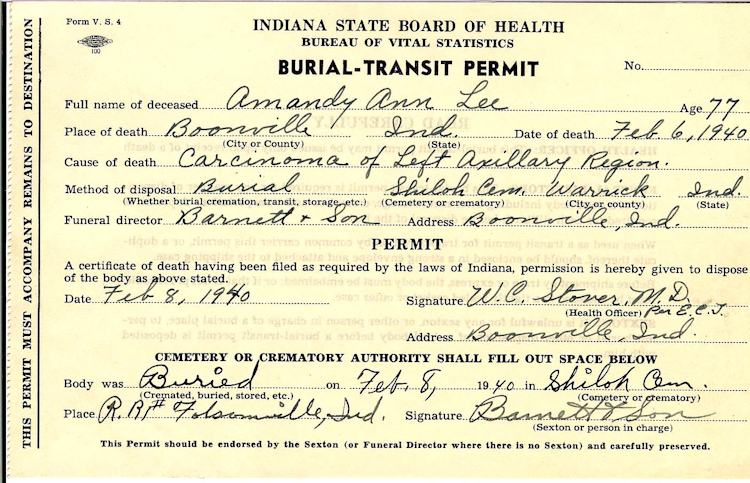 Form V. S. 4
100
INDIANA STATE BOARD OF HEALTH
BUREAU OF VITAL STATISTICS
BURIAL-TRANSIT PERMIT
No.
Full name of deceased Amandy Ann Lee Age 77
Place of death Boonville Ind. Date of death Feb 6, 1940
(City or County) (State)
Cause of death Carcinoma of Left Axillary Region.
Method of disposal Burial Shiloh Cem. Warrick Ind.
(Whether burial cremation, transit, storage, etc.) (Cemetery or crematory) (City or county) (State)
Funeral director Barnett & Son Address Boonville, Ind.
PERMIT
A certificate of death having been filed as required by the laws of Indiana, permission is hereby given to dispose
of the body as above stated.
Date Feb 8, 1940 Signature W. C. Stover, M. D.
(Health Officer) Per E. C. J.
Address Boonville, Ind.
CEMETERY OR CREMATORY AUTHORITY SHALL FILL OUT SPACE BELOW
Body was Buried on Feb. 8, 1940 in Shiloh Cem.
(Cremated, buried, stored, etc.) (Cemetery or crematory)
Place R. R# Folsomville, Ind. Signature Barnett & Son
(Sexton or person in charge)
This Permit should be endorsed by the Sexton (or Funeral Director where there is no Sexton) and carefully preserved.
THIS PERMIT MUST ACCOMPANY REMAINS TO DESTINATION